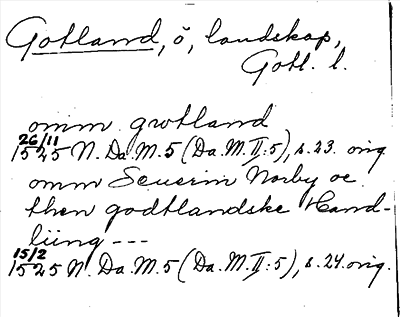 Gotland, ö, landskap,
Gotl. l.
omm gwtland
26/11
1525 N. Da. M. 5 (Da. M. II: 5), s. 23. orig
omm Seuerin Norby oc
then godtlandske Hand-
lüng ---
15/2
1525 N. Da. M. 5 (Da. M. II: 5), s. 24. orig.